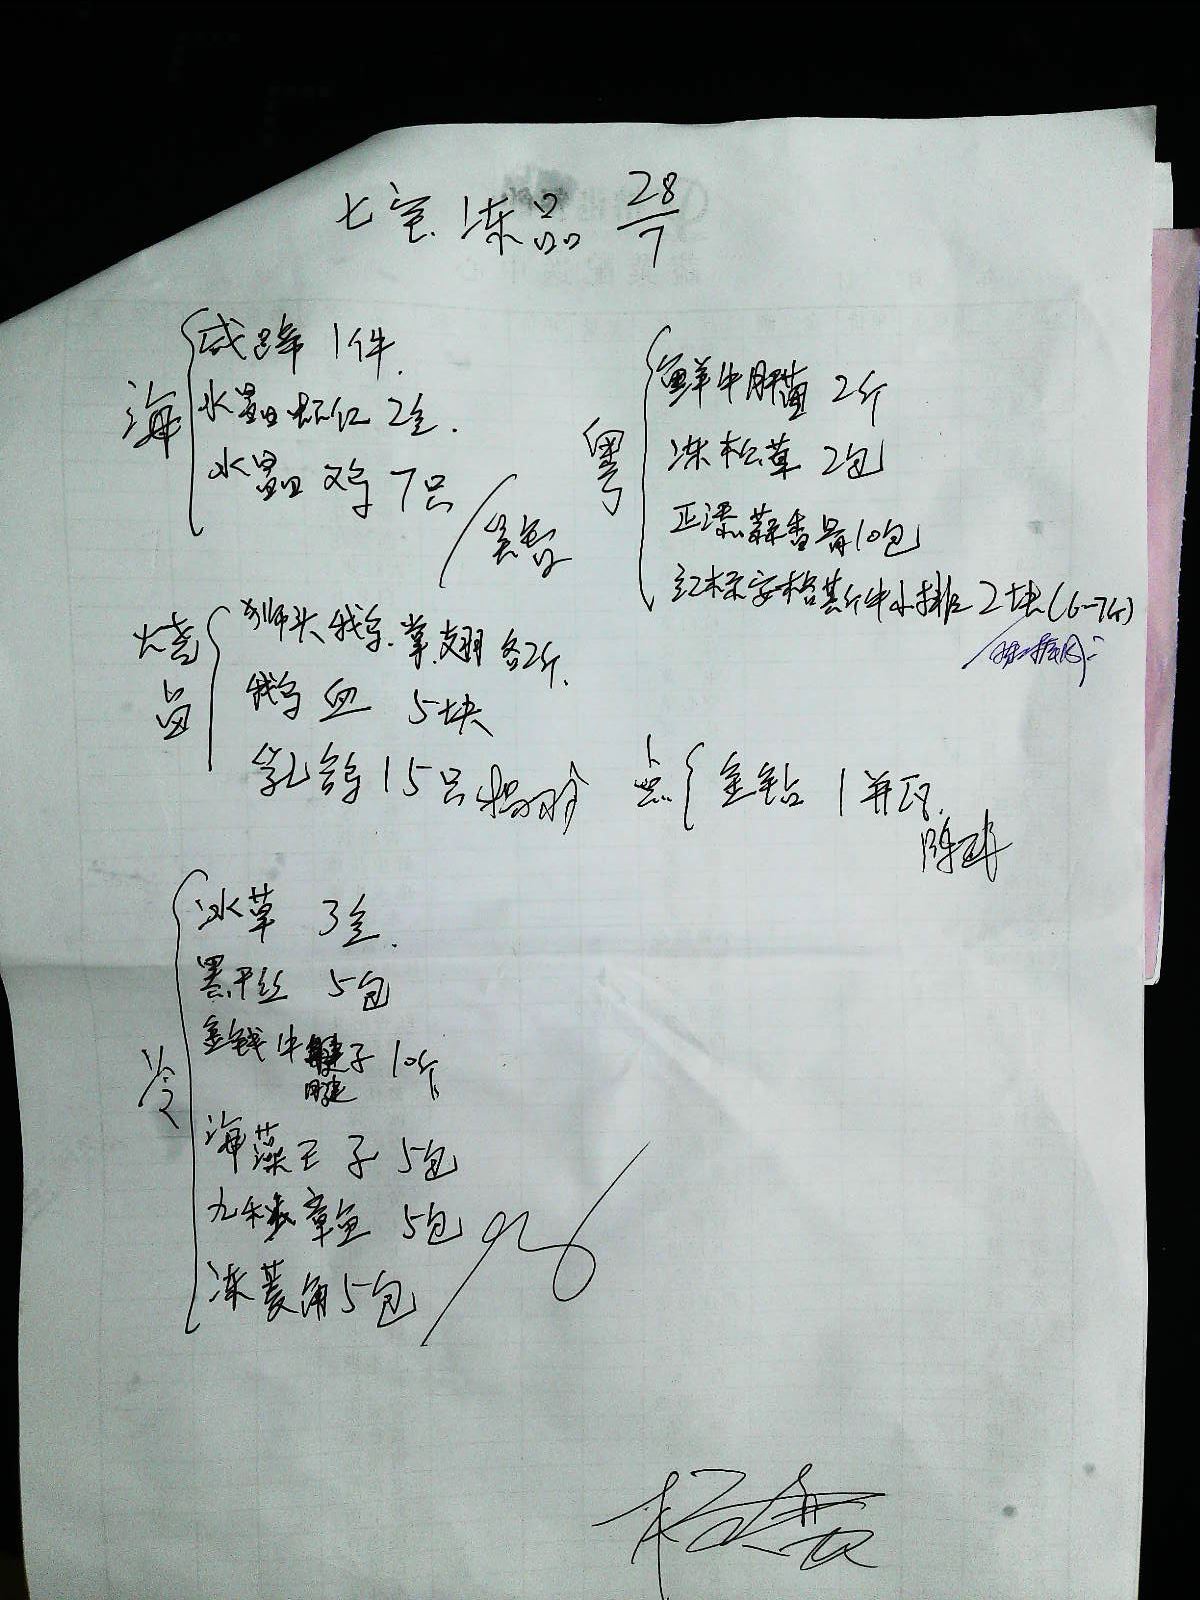 七宝冻品 28/7
海
咸蹄 1件.
水晶虾仁 2盒.
水晶鸡 7只
粤
鲜牛肝菌 2斤
冻松草 2包
蒜香骨10包
红标安格斯牛小排 2块(6-7斤)
烧卤
狮头鹅.掌.翅各2斤.
鹅血 5块
乳鸽 15只
点
金钻 1
冷
冰草 3盒.
黑干丝 5包
金钱牛腱子 10斤
腱
海藻王子 5包
章鱼 5包
冻菱角5包